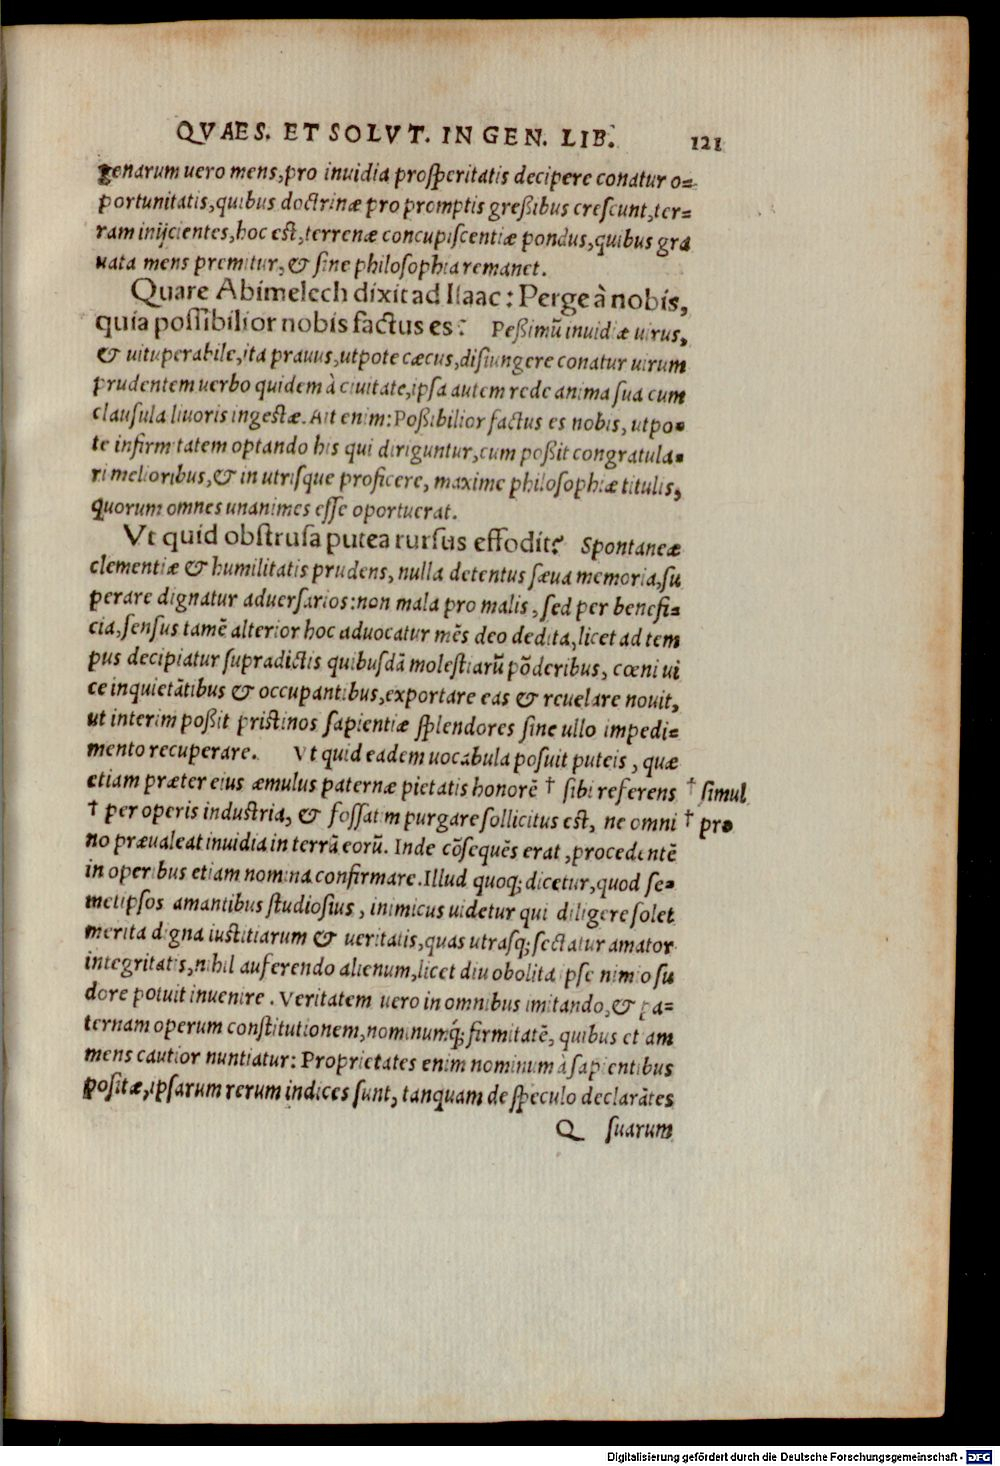 QVAES. ET SOLVT. IN GEN. LIB. 121
genarum uero mens, pro inuidia prosperitatis decipere conatur o-
portunitatis, quibus doctrinæ pro promptis greßibus crescunt, ter-
ram inijcientes, hoc est, terrenæ concupiscentiæ pondus, quibus gra
uata mens premitur, & sine philosophia remanet.
Quare Abimelech dixit ad Isaac: Perge à nobis,
quia possibilior nobis factus es? Peßimũ inuidiæ uirus,
& uituperabile, ita prauus, utpote cæcus, disiungere conatur uirum
prudentem uerbo quidem à ciuitate, ipsa autem re de anima sua cum
clausula liuoris ingestæ. Ait enim: Poßibilior factus es nobis, utpo-
te infirmitatem optando his qui diriguntur, cum poßit congratula-
ri melioribus, & in utrisque proficere, maxime philosophiæ titulis,
quorum omnes unanimes esse oportuerat.
Vt quid obstrusa putea rursus effodit? Spontaneæ
clementiæ & humilitatis prudens, nulla detentus sæua memoria, su
perare dignatur aduersarios: non mala pro malis, sed per benefi-
cia, sensus tamẽ alterior hoc aduocatur mẽs deo dedita, licet ad tem
pus decipiatur supradictis quibusdã molestiarũ põderibus, cœni ui
ce inquietãtibus & occupantibus, exportare eas & reuelare nouit,
ut interim poßit pristinos sapientiæ splendores sine ullo impedi-
mento recuperare. Vt quid eadem uocabula posuit puteis, quæ
etiam præter eius æmulus paternæ pietatis honorẽ † sibi referens † simul
† per operis industria, & fossatim purgare sollicitus est, ne omni † pro
no præualeat inuidia in terrã eorũ. Inde cõsequẽs erat, procedentẽ
in operibus etiam nomina confirmare. Illud quoq; dicetur, quod se-
metipsos amantibus studiosius, inimicus uidetur qui diligere solet
merita digna iustitiarum & ueritatis, quas utrasq; sectatur amator
integritatis, nihil auferendo alienum, licet diu obolita ipse nimio su
dore potuit inuenire. Veritatem uero in omnibus imitando, & pa-
ternam operum constitutionem, nominumq́; firmitatẽ, quibus etiam
mens cautior nuntiatur: Proprietates enim nominum à sapientibus
positæ, ipsarum rerum indices sunt, tanquam de speculo declarãtes
Q suarum
Digitalisierung gefördert durch die Deutsche Forschungsgemeinschaft - DFG